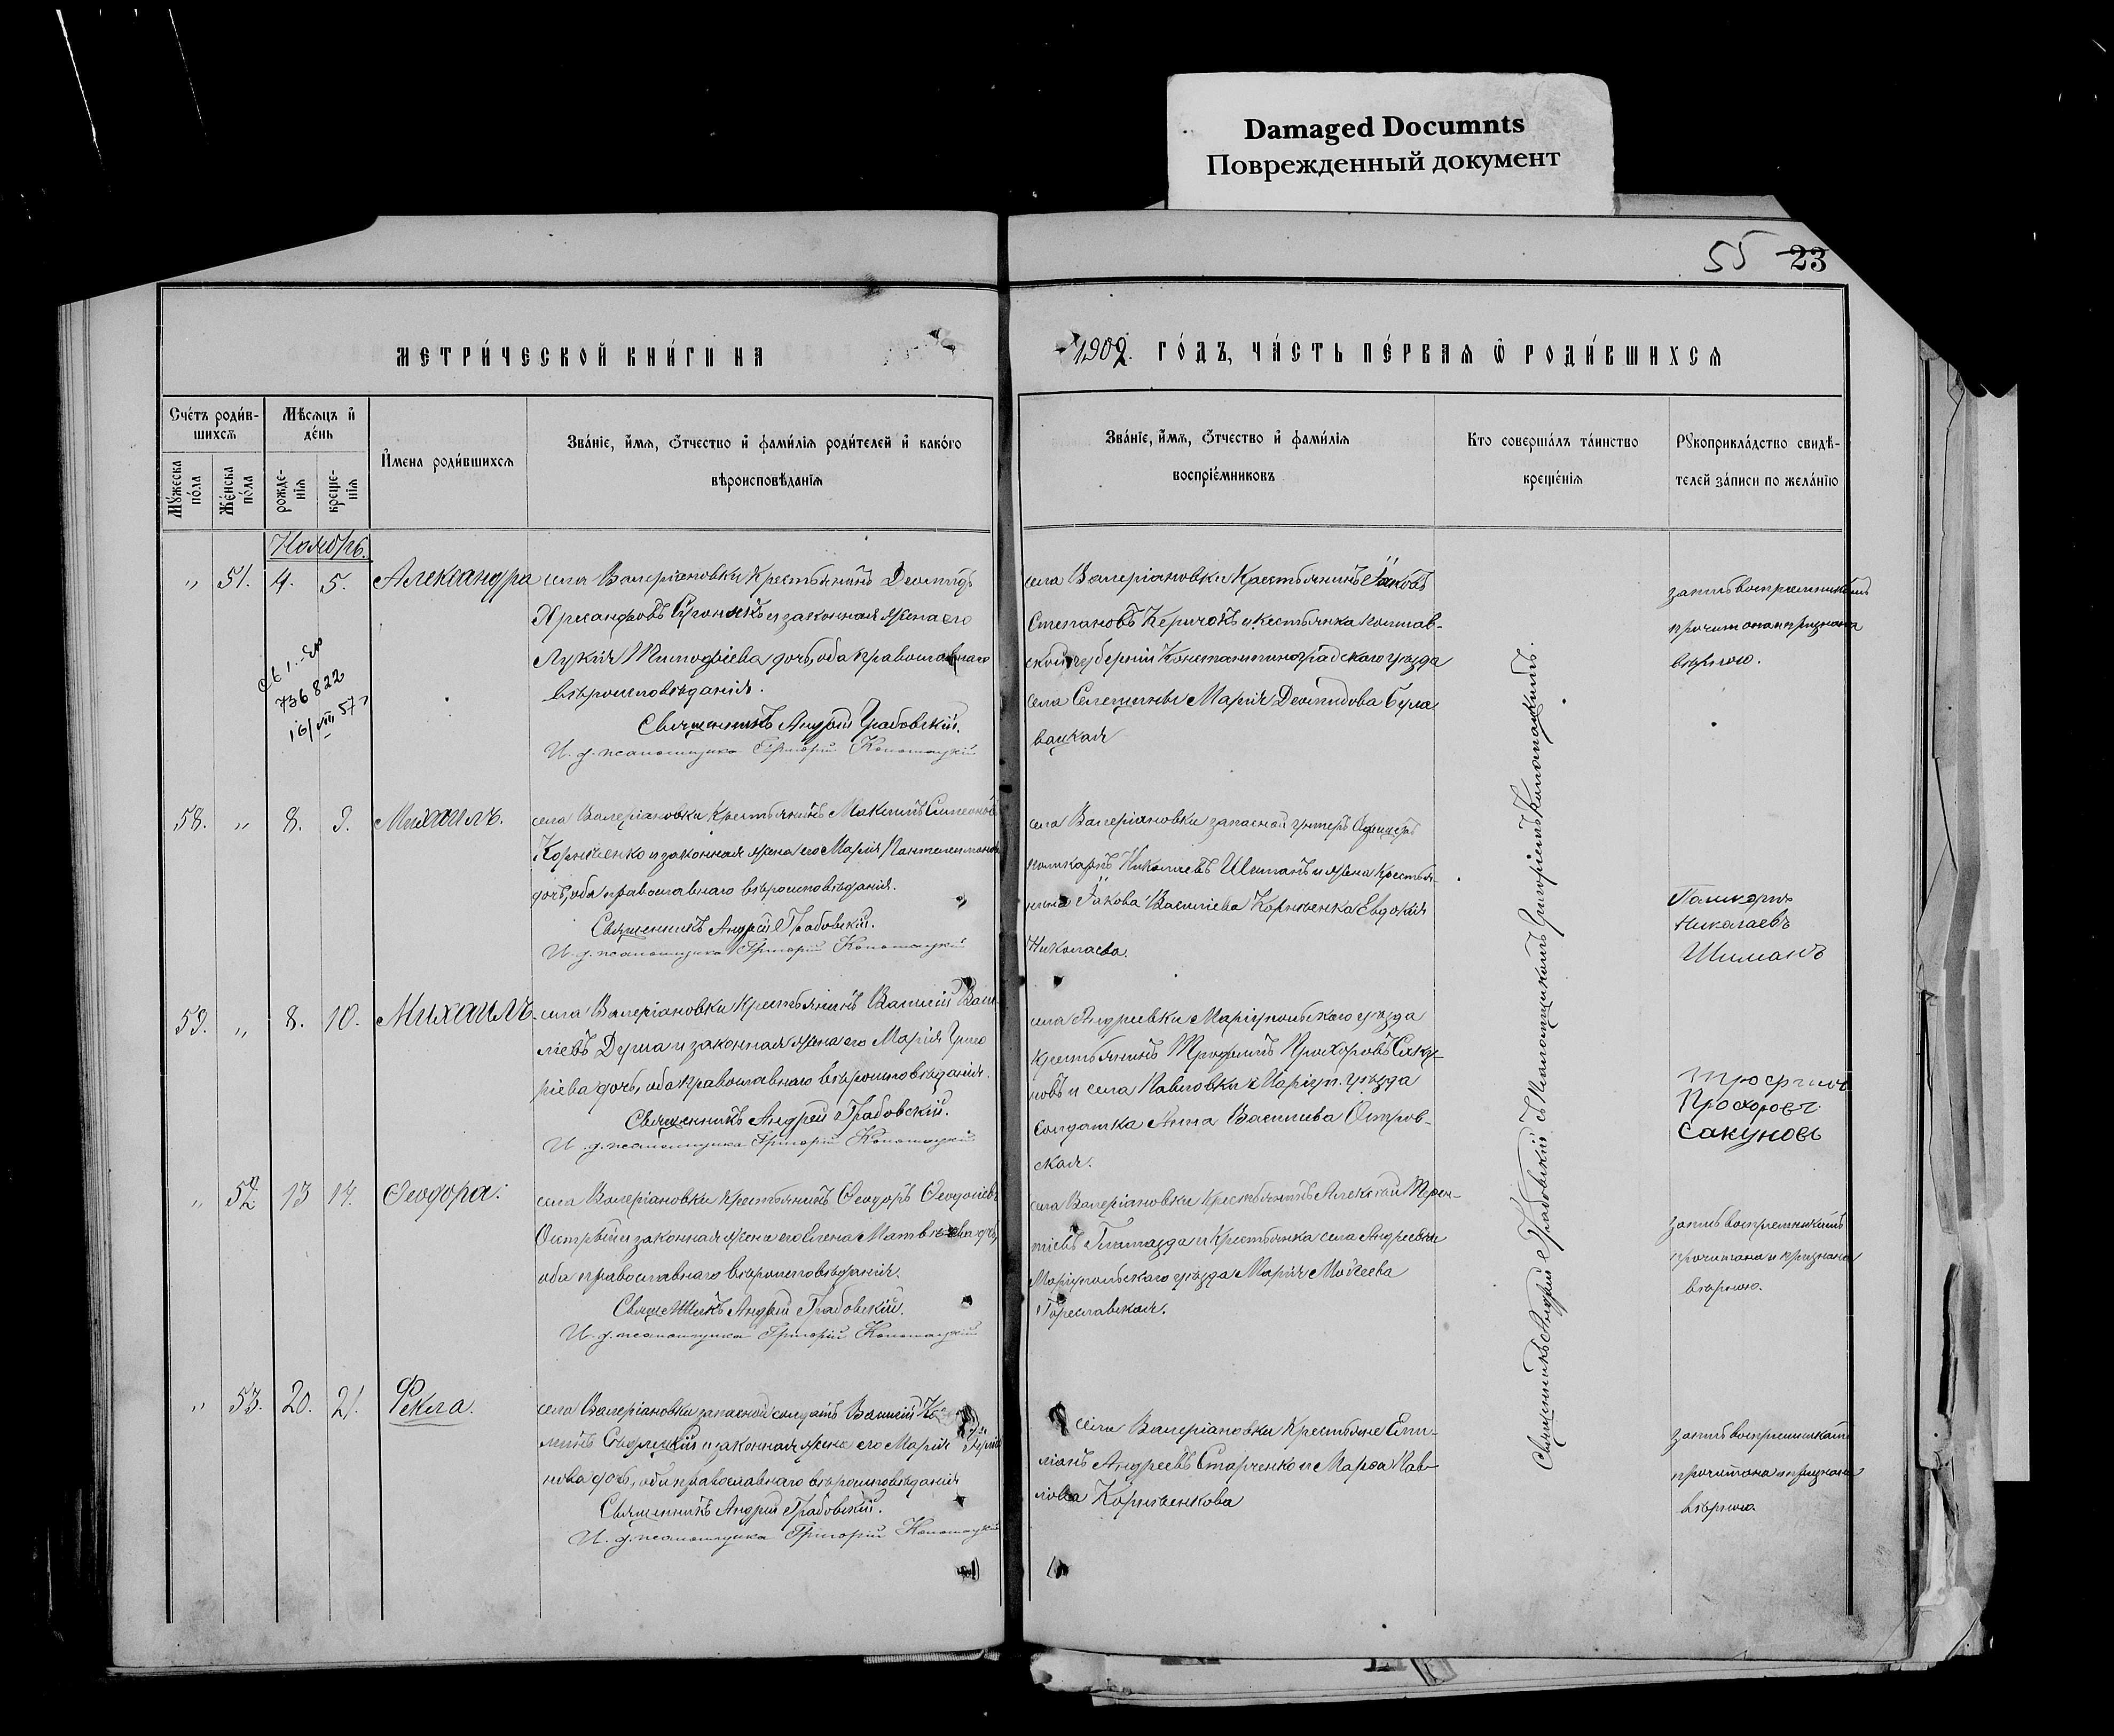 Damaged Documnts
Поврежденный документ
55 23
МЕТРИ́ЧЕСКОЙ КНИ́ГИ НА
1902. ГО́ДЪ, ЧА́СТЬ ПЕ́РВАЯ Ѿ РОДИ́ВШИХСЯ
Сче́тъ роди́в-
шихся
Мѣсяцъ и
де́нь
Мꙋ́жеска по́ла
Же́нска по́ла
рожде-
нїя
креще-
нїя
И́мена роди́вшихся
Зва́нїе, и́мя, о́тчество и фами́лїя роди́телей и како́го
вѣроисповѣ́данїя
Зва́нїе, и́мя, о́тчество и фами́лїя
воспрїе́мниковъ
Кто соверша́лъ та́инство
креще́нїя
Рꙋкоприкла́дство свидѣ́-
телей за́писи по жела́нїю
Ноябрь.
" 51. 4. 5. Александра
села Валеріановки Крестьянинъ Деомидъ
Хрисанфовъ и законная жена его
Лукія Тимофіева дочь, оба православнаго
вѣроисповѣданія.
Священникъ Андрей Грабовскій.
И. д. псаломщика Григорій Копотацкій
736822
16/VIII 57 г
села Валеріановки Крестьянинъ Іаковъ
Степановъ Керичокъ и кестьянка Полтав-
ской губерніи Константиноградскаго уѣзда
села Селещины Марія Деомидова Бума
вацкая
запись воспріемникамъ
прочитана и признана
вѣрною.
58. " 8. 9. Михаилъ.
села Валеріановки Крестьянинъ Максимъ Симеоновъ
Корніенко и законная жена его Марія Пантелеимонова
дочь, оба православнаго вѣроисповѣданія.
Священникъ Андрей Грабовскій.
И. д. псаломщика Григорій Копотацкій
села Валеріановки запасной унтеръ Офицеръ
Поликарпъ Николаевъ Шиманъ и жена Крестья-
нина Іакова Василіева Корніенка Евдокія
Николаева.
Поликарпъ
Николаевъ
Шиманъ
59. " 8. 10. Михаилъ.
села Валеріановки Крестьянинъ Василій Васи-
ліевъ Дурма и законная жена его Марія Григо
ріева дочь, оба православнаго вѣроисповѣданія.
Священникъ Андрей Грабовскій.
И. д. псаломщика Григорій Копотацкій
села Андреевки Маріупольскаго уѣзда
крестьянинъ Трофимъ Прохоровъ Саку-
новъ и села Павловки Маріуп. уѣзда
солдатка Анна Василиева Остров-
ская.
Трофимъ
Прохоровъ
Сакуновъ
" 52. 13 14. Ѳеодора.
села Валеріановки Крестьянинъ Ѳеодоръ Ѳеодосіевъ
Острый и законная жена его Елена Матвѣева дочь,
оба православнаго вѣроисповѣданія.
Священникъ Андрей Грабовскій.
И. д. псаломщика Григорій Копотацкій
села Валеріановки Крестьянинъ Алексѣй Терен-
тіевъ Гламазда и Крестьянка села Андреевки
Маріупольскаго уѣзда Марія Моѵсеева
Гореславская.
запись воспріемникамъ
прочитана и признана
вѣрною.
" 53. 20. 21. Ѳекла.
села Валеріановки запасной солдатъ Василій
и законная жена его Марія
нова дочь, оба православнаго вѣроисповѣданія
Священникъ Андрей Грабовскій.
И. д. псаломщика Григорій Копотацкій
села Валеріановки Крестьяне Еми-
ліанъ Андреевъ Старченко и Марѳа Пав-
лова Корніенкова
запись воспріемникамъ
прочитана и признана
вѣрною
Священникъ Андрей Грабовскій съ Псаломщикомъ Григоріемъ Копотацкимъ.